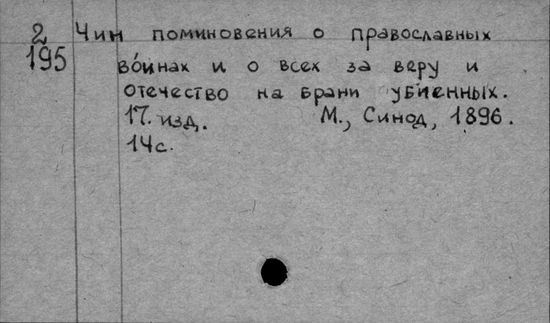 2 Чин поминовения о православных
195 воинах и о всех за веру и
отечество на брани убиенных.
17. изд. М., Синод, 1896.
14 с.